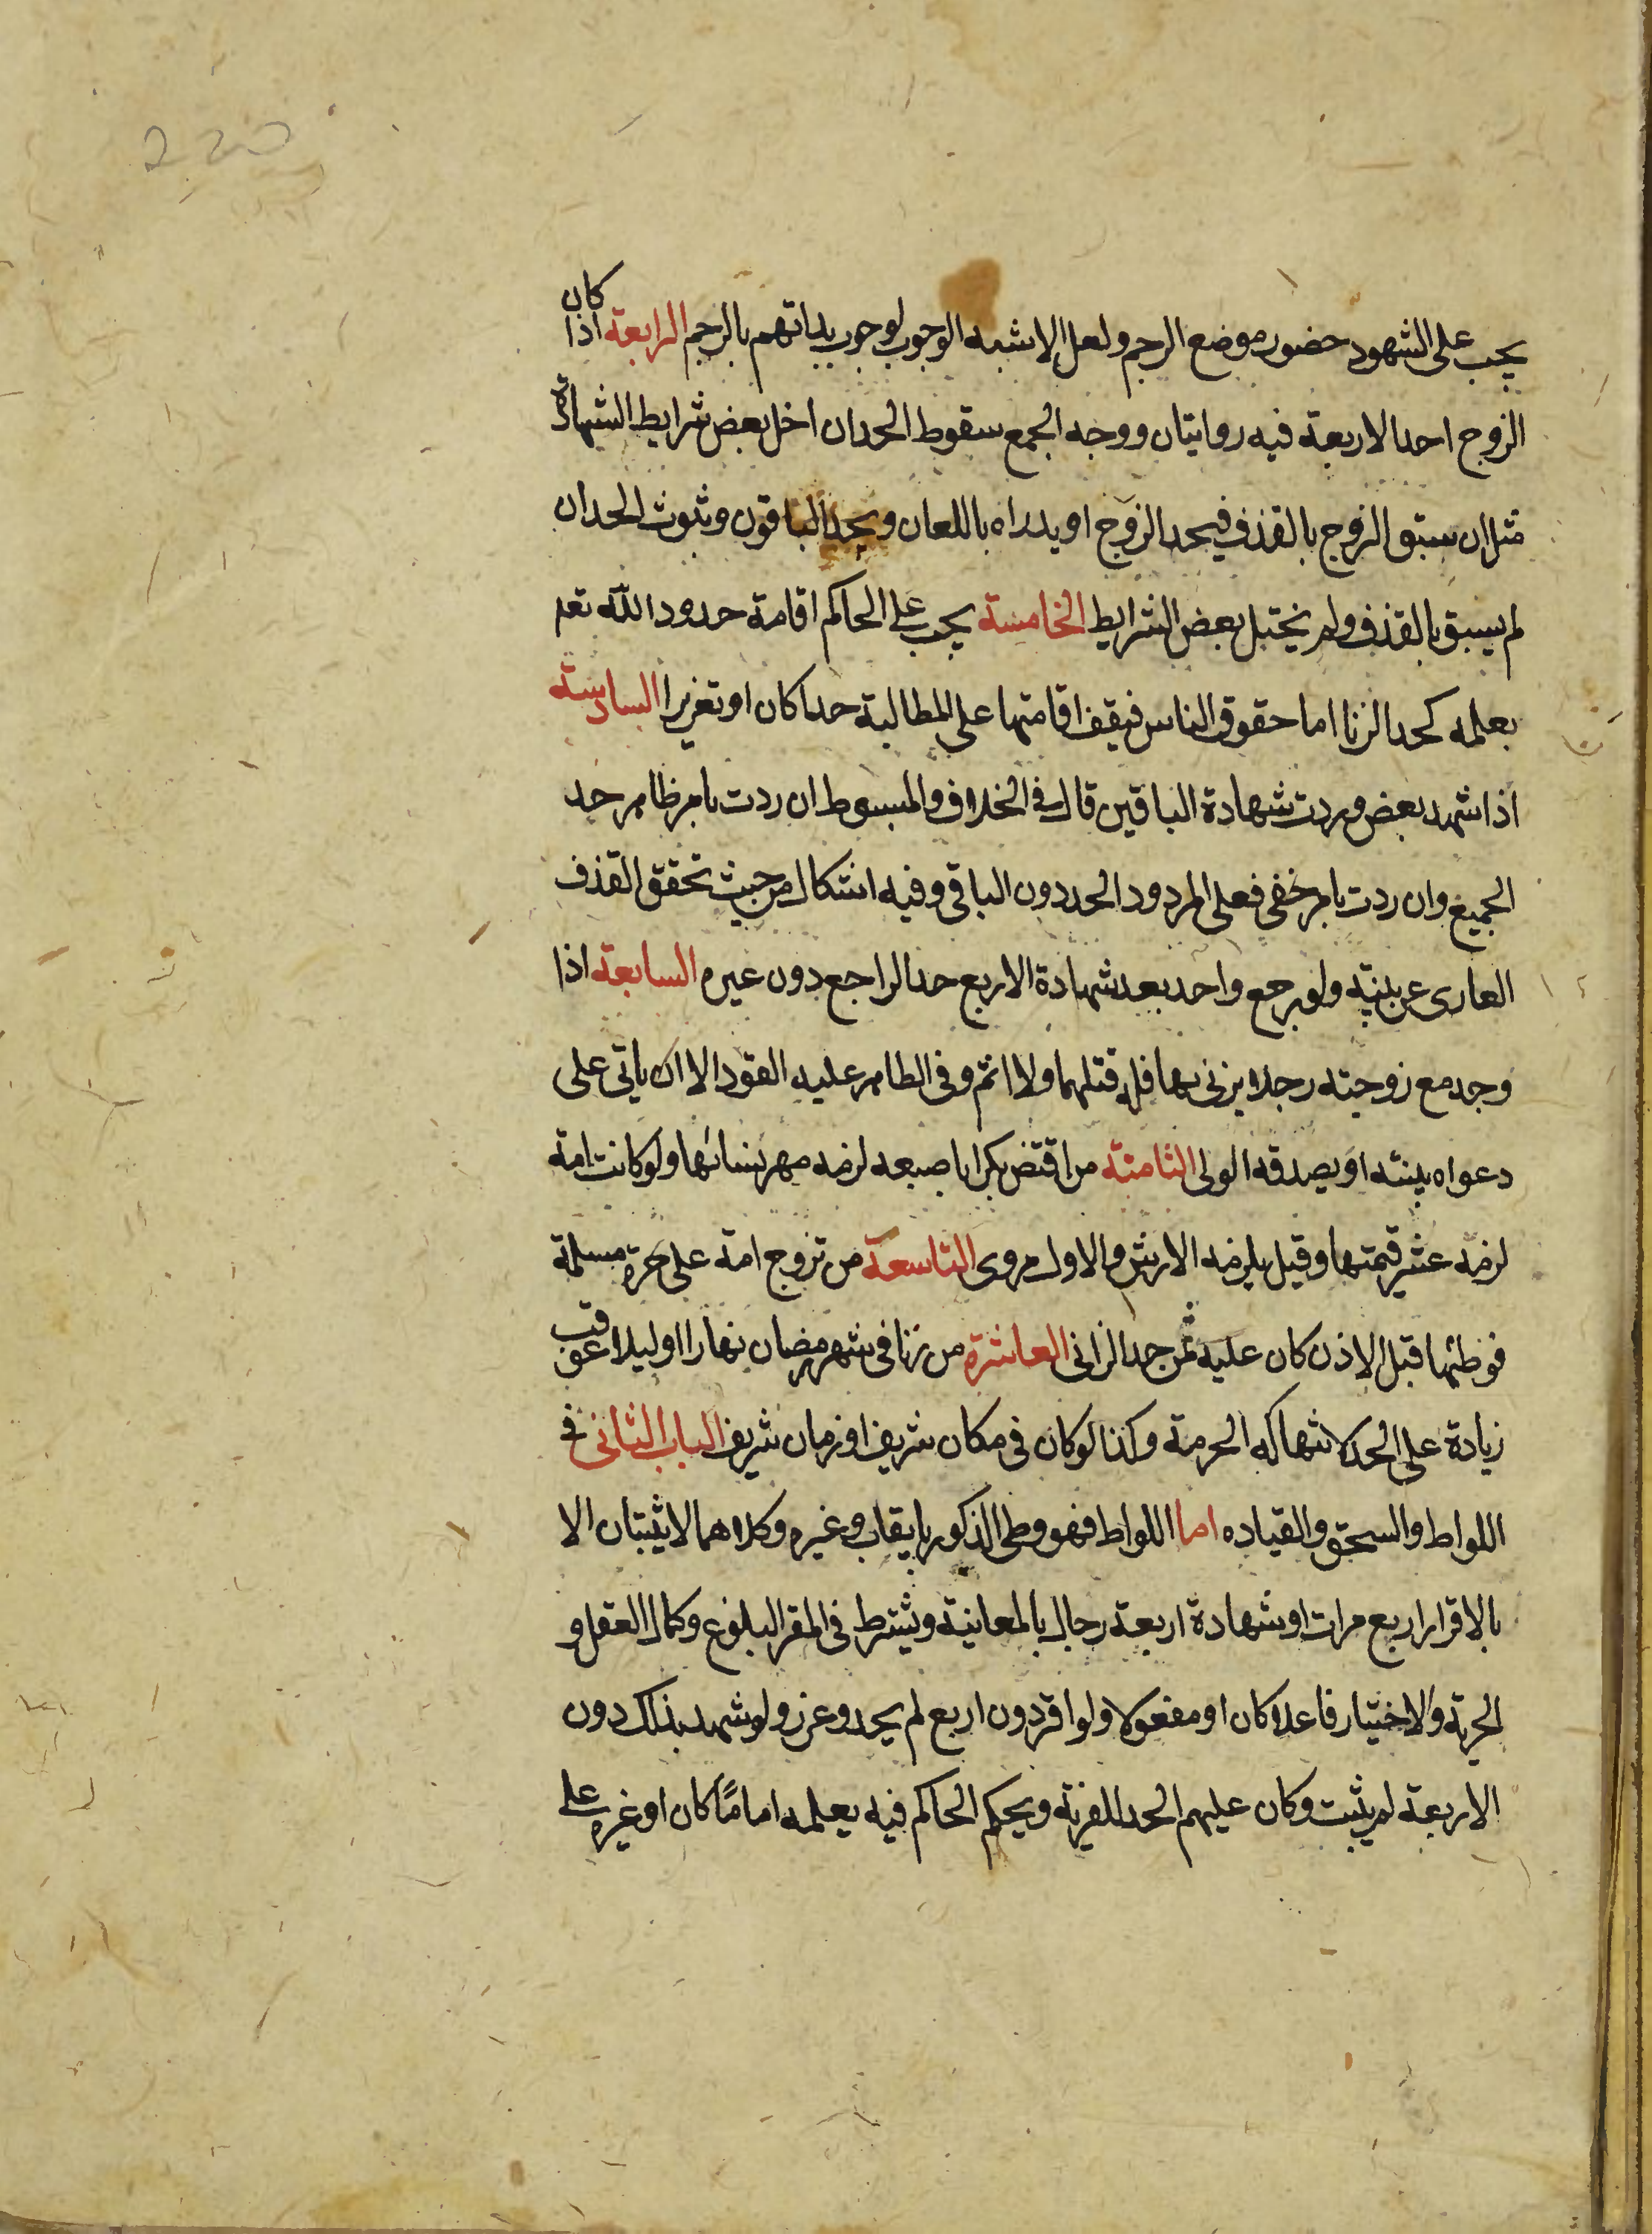 يجب على الشهود حضور موضع الرجم ولعل الاشبه الوجوب لوجوب بداتهم بالرجم الرابعة اذا كان
الزوج احد الاربعة فيه روايتان ووجه الجمع سقوط الحد ان اخل بعض شرايط الشهادة
مثل ان سبق الزوج بالقذف فيحد الزوج او يدراه باللعان ويحد الباقون وثبوت الحد ان
لم يسبق بالقذف ولم يختل بعض الشرايط الخامسة يجب على الحاكم اقامة حدود الله تعم
بعلمه كحد الزنا اما حقوق الناس فيقف اقامتها على المطالبة حدا كان او تعزيرا السادسة
اذا شهد بعض وردت شهادة الباقين قال في الخلاف والمبسوط ان ردت بامر ظاهر حد
الجميع وان ردت بامر خفى فعلى المردود الحد دون الباقى وفيه اشكال من حيث تحقق القذف
العارى عن بينة ولو رجع واحد بعد شهادة الاربع حد الراجع دون غيره السابعة اذا
وجد مع زوجته رجلا يزنى بها فله قتلهما ولا اثم وفى الظاهر عليه القود الا ان ياتى على
دعواه بينة او يصدقه الولى الثامنة من اقتض بكرا باصبعه لزمه مهر نسائها ولو كانت امة
لزمه عشر قيمتها وقيل يلزمه الارش والاول مروى التاسعة من تزوج امة على حرة مسلمة
فوطئها قبل الاذن كان عليه ثمن حد الزانى العاشرة من زنا فى شهر رمضان نهارا او ليلا عوقب
زيادة على الحد لانتهاكه الحرمة وكذا لو كان فى مكان شريف او زمان شريف الباب الثانى فى
اللواط والسحق والقياده اما اللواط فهو وطى الذكور بايقاب وغيره وكلاهما لا يثبتان الا
بالاقرار اربع مرات او شهادة اربعة رجال بالمعاينة ويشترط فى المقر البلوغ وكمال العقل و
الحرية والاختيار فاعلا كان او مفعولا ولو اقر دون اربع لم يحد وعزر ولو شهد بذلك دون
الاربعة لم يثبت وكان عليهم الحد للفرية ويحكم الحاكم فيه بعلمه اماما كان او غيره على